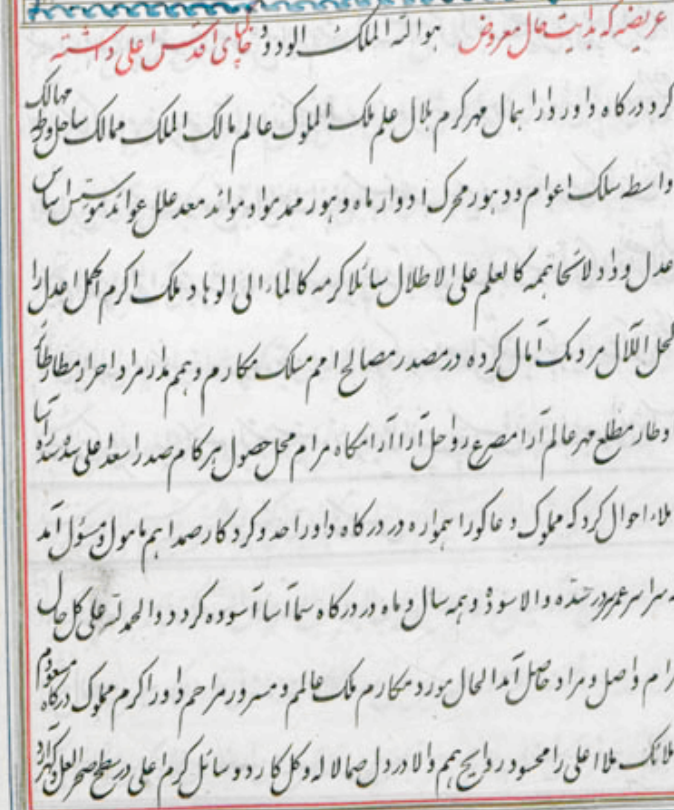 عریضه که بدایت حال معروض هو الله الملک الودود خاکپای اقدس اعلی داشته
کرد درگاه داور دارا همال مهر کرم هلال علم ملک الملوک عالم مالک الملک ممالک ساحل وطر مهالک
واسطه سلک اعوام و دهور محرک ادوار ماه و هور ممد مواد موائد معد علل عوائد موسس اساس
عدل و داد کالعلم علی الاطلال سائلا کرمه کالماء الی الوهاد ملک اکرم اکحل اعدل را
کحل آمال کرده در مصدر مصالح امم مسلک مکارم و همم مدار مراد احرار مطار
اوطار مطلع مهر عالم آرا مصرع رواحل آرا آرامگاه مرام محل حصول هر کام صدر اسعد اعلی سده سدره آسا
ملاء احوال کرد که مملوک دعاگو را همواره در درگاه داور احد و کردگار صمد اهم مامول و مسئول آمد
سراسر عمر در سده والا سوده و همه سال و ماه در درگاه سما آسا آسوده گردد و الحمد لله علی کل حال
مرام واصل و مراد حاصل آمد الحال مورد مکارم ملک عالم و مسرور مراحم داور اکرم مملوک درگاه
ملائک ملا اعلی را محسود روایح همم والا در دل صما لاله و گل کارد و سائل کرم اعلی در سطح صحرا لعل و گهر